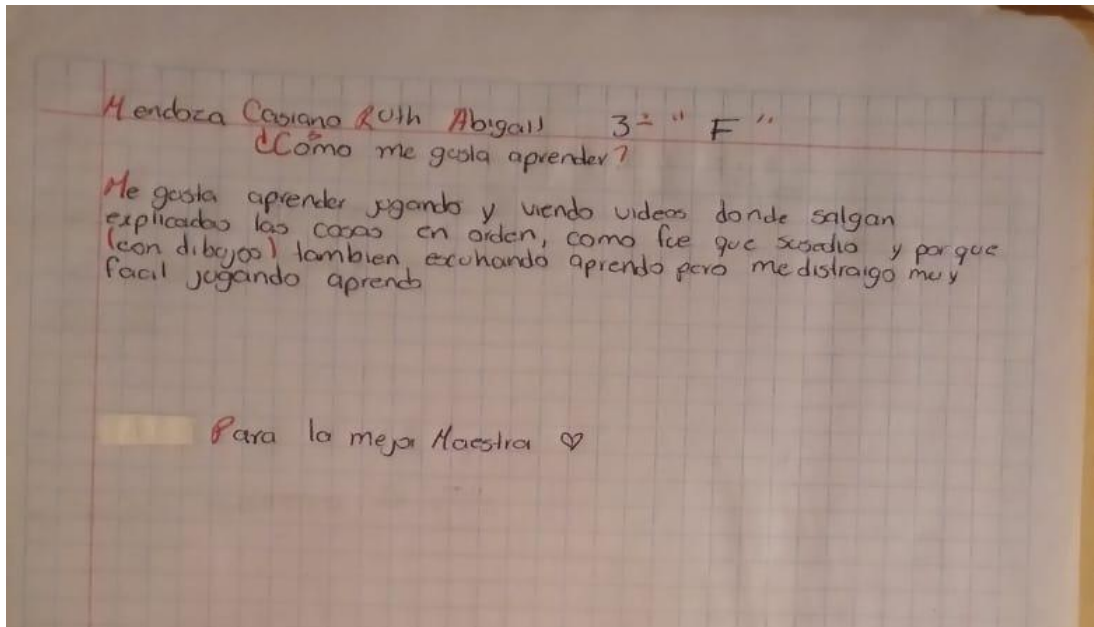 Mendoza Casiano Ruth Abigail 3° "F"
¿Cómo me gusta aprender?
Me gusta aprender jugando y viendo videos donde salgan
explicadas las cosas en orden, como fue que susedio y por que
(con dibujos) tambien, escuhando aprendo pero me distraigo muy
facil jugando aprendo
Para la mejor Maestra ♡